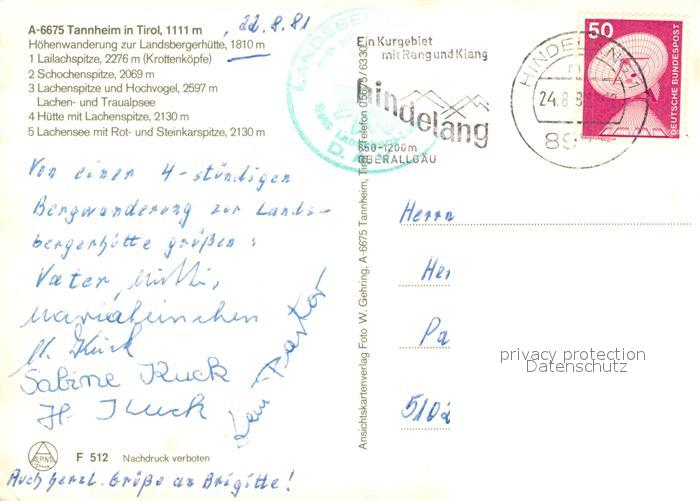 A-6675 Tannheim in Tirol, 1111 m , 22.8.81
Höhenwanderung zur Landsbergerhütte, 1810 m
1 Lailachspitze, 2276 m (Krottenköpfe)
2 Schochenspitze, 2069 m
3 Lachenspitze und Hochvogel, 2597 m
Lachen- und Traualpsee
4 Hütte mit Lachenspitze, 2130 m
5 Lachensee mit Rot- und Steinkarspitze, 2130 m
Von einer 4-stündigen
Bergwanderung zur Lands-
bergerhütte grüßen:
Vater, Mutti,
Mariaheinchen
H. Kuck
Sabine Kuck
H. Kuck
Pastor
F 512 Nachdruck verboten
Auch herzl. Grüße an Brigitte!
Ansichtskartenverlag Foto W. Gehring, A-6675 Tannheim, Tirol, Telefon 05675/6330
LANDSBERG
Ein Kurgebiet
mit Rang und Klang
Hindelang
850-1200m
OBERALLGÄU
HINDELANG 1
24.8.8
89
50
DEUTSCHE BUNDESPOST
Herrn
Her
Pa
5102
privacy protection
Datenschutz